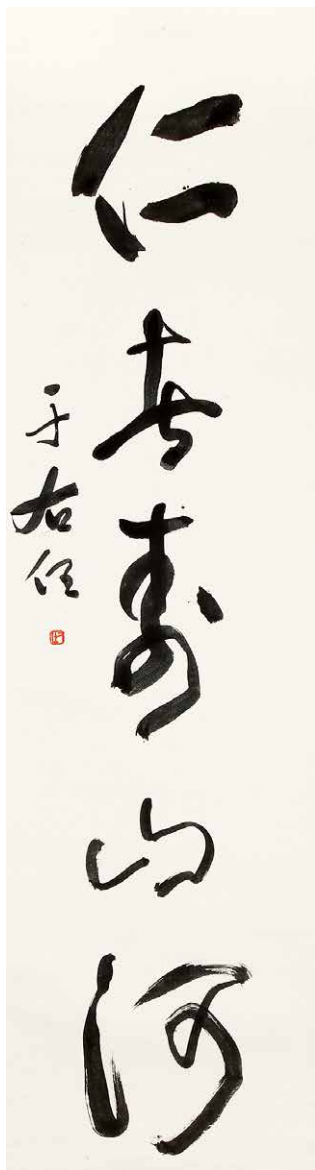 仁者壽山河
于右任